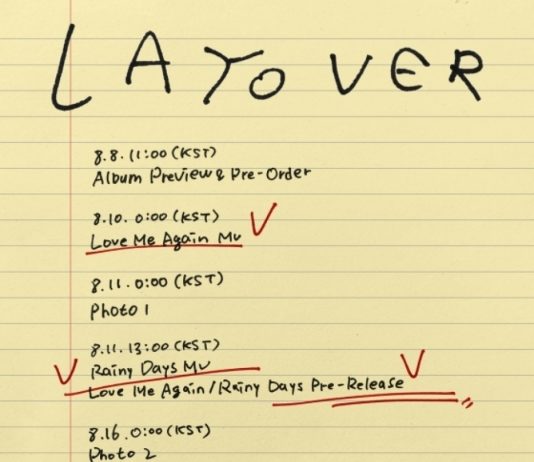 LAYOVER
8.8. 11:00 (KST)
Album Preview & Pre-Order
8.10. 0:00 (KST)
Love Me Again MV
8.11. 0:00 (KST)
Photo 1
8.11. 13:00 (KST)
Rainy Days MV
Love Me Again / Rainy Days Pre-Release
8.16. 0:00 (KST)
Photo 2